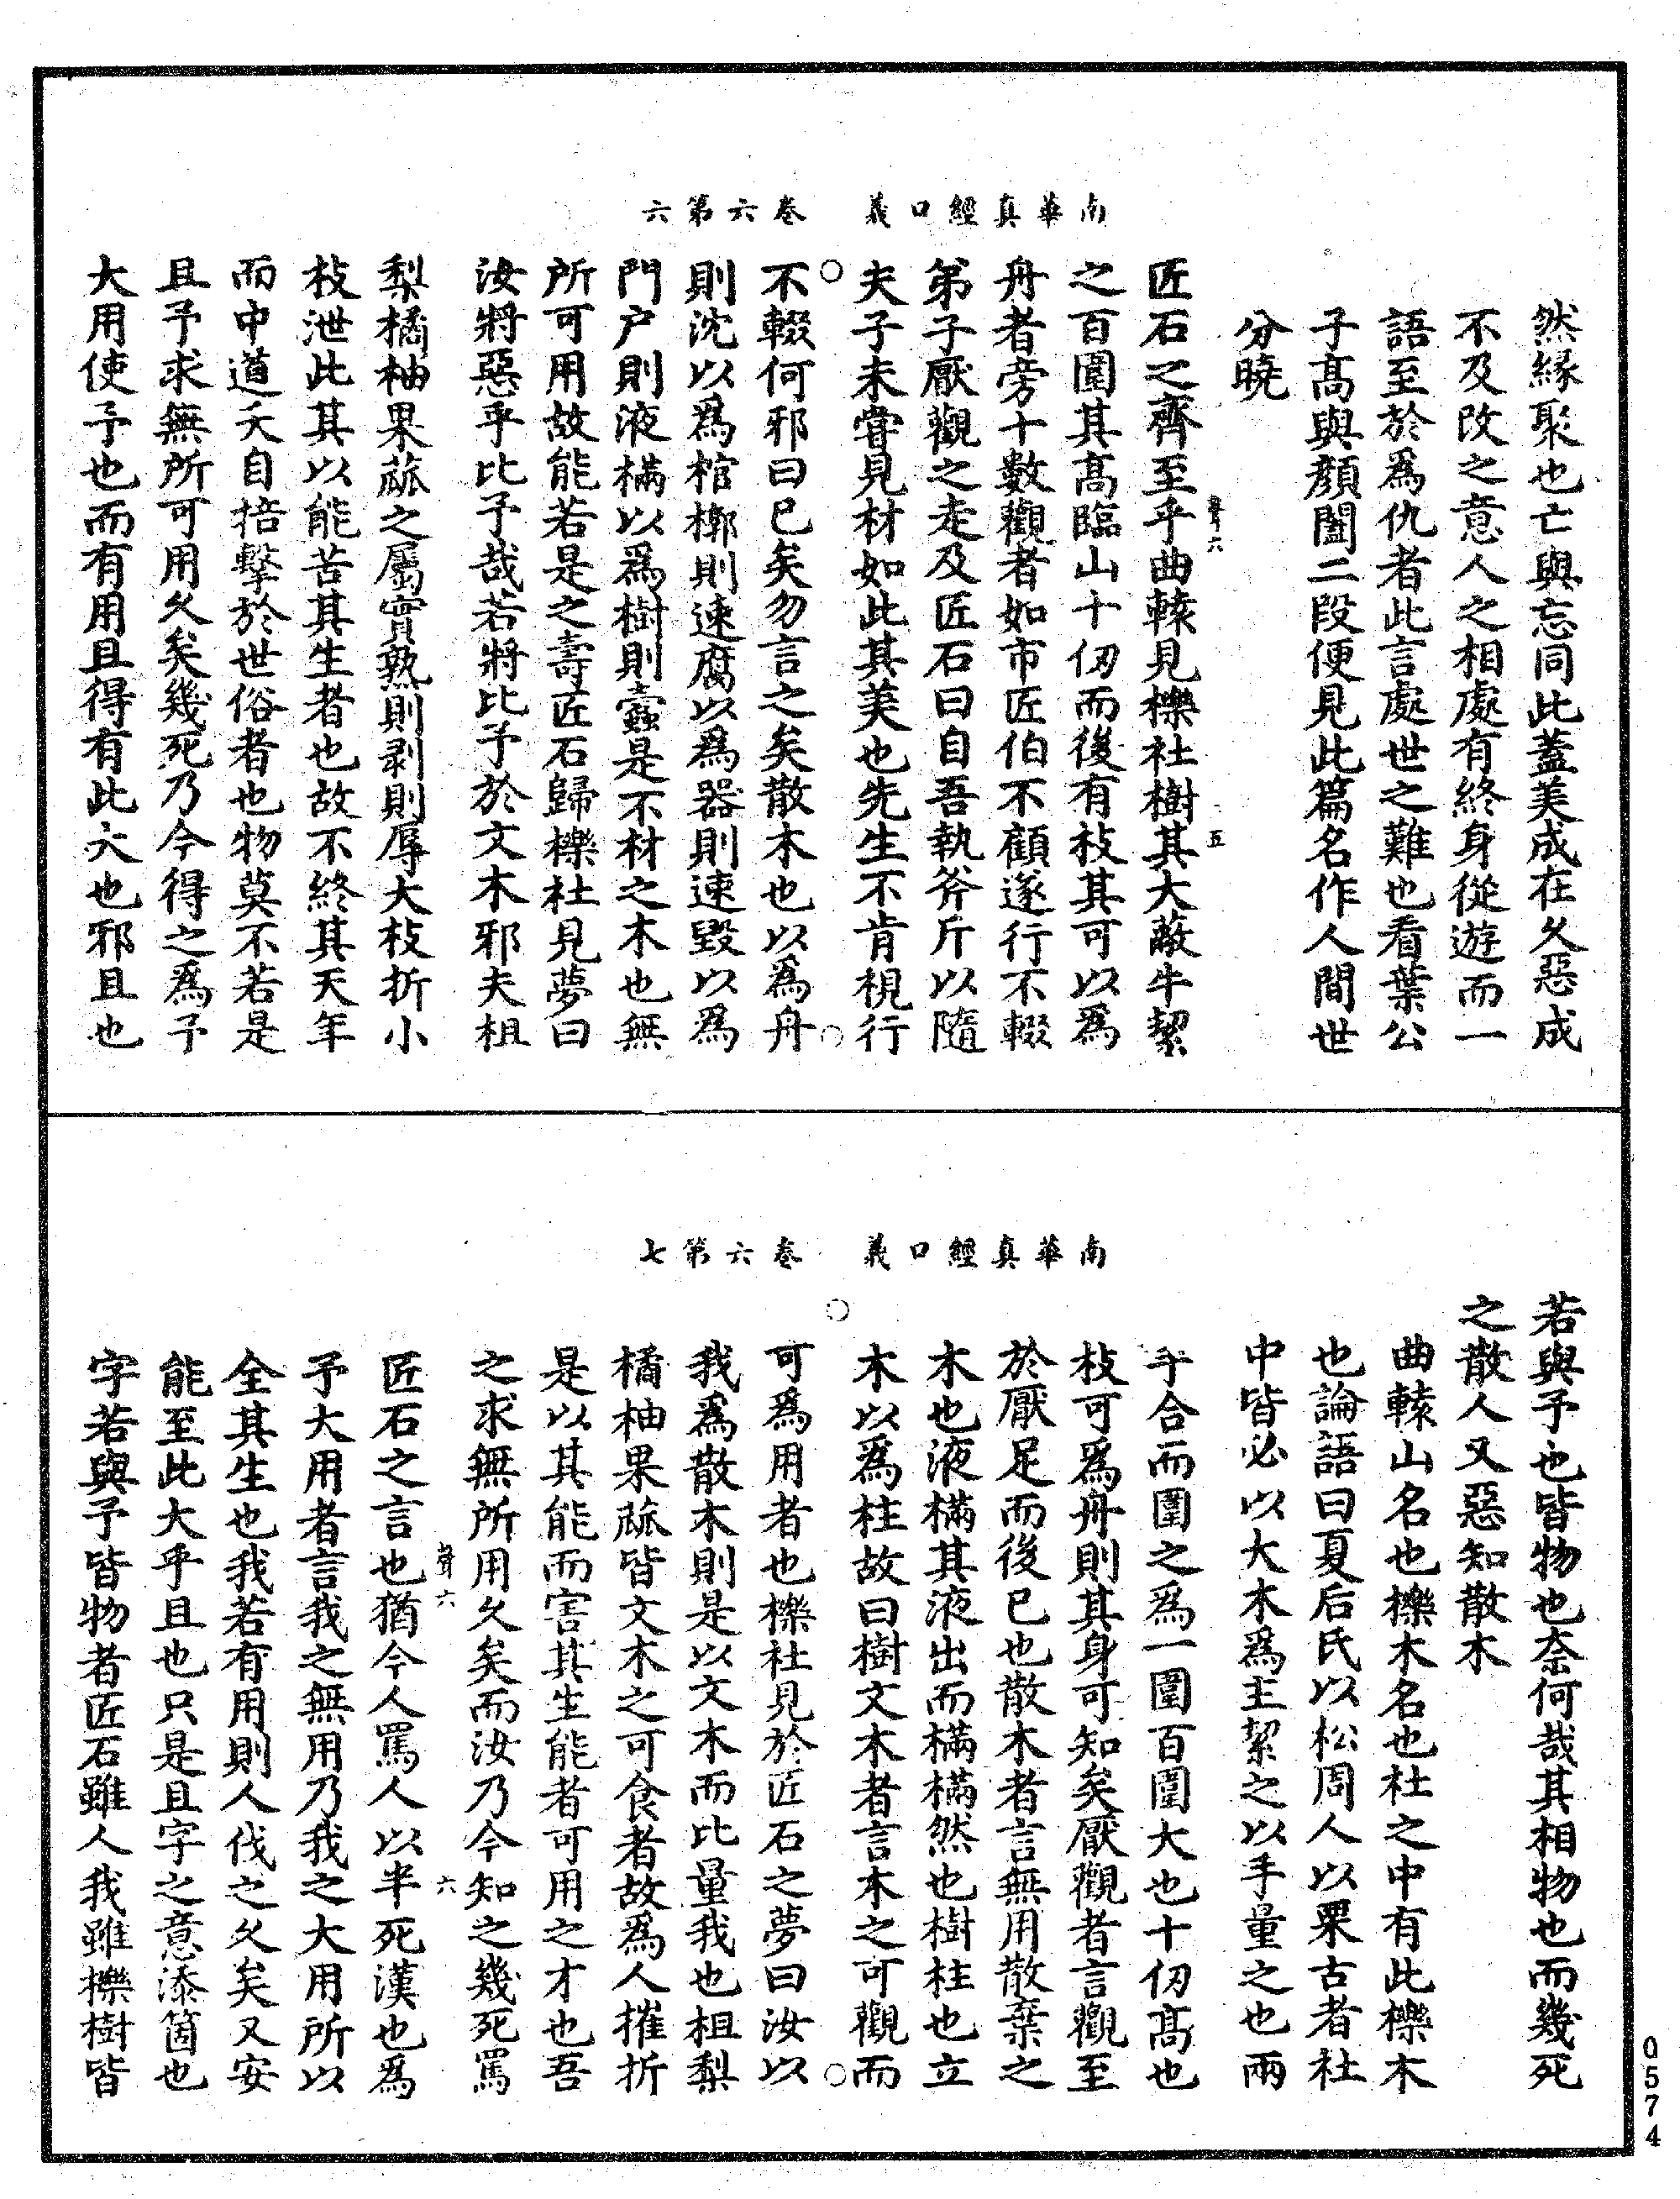 南華真經口義　卷六第六
然緣聚也亡與忘同此蓋美成在久惡成
不及改之意人之相處有終身從遊而一
語至於為仇者此言處世之難也看葉公
子高與顏闔二段便見此篇名作人間世
分曉
聲六　五
匠石之齊至乎曲轅見櫟社樹其大蔽牛絜
之百圍其高臨山十仞而後有枝其可以為
舟者旁十數觀者如市匠伯不顧遂行不輟
弟子厭觀之走及匠石曰自吾執斧斤以隨
夫子未嘗見材如此其美也先生不肯視行
不輟何邪曰已矣勿言之矣散木也以為舟
則沈以為棺槨則速腐以為器則速毀以為
門户則液樠以為樹則蠹是不材之木也無
所可用故能若是之壽匠石歸櫟社見夢曰
汝將惡乎比予哉若將比予於文木邪夫柤
梨橘柚果蓏之屬實熟則剥則辱大枝折小
枝泄此其以能苦其生者也故不終其天年
而中道夭自掊擊於世俗者也物莫不若是
且予求無所可用久矣幾死乃今得之為予
大用使予也而有用且得有此大也邪且也
南華真經口義　卷六第七
若與予也皆物也奈何哉其相物也而幾死
之散人又惡知散木
曲轅山名也櫟木名也社之中有此櫟木
也論語曰夏后氏以松周人以栗古者社
中皆必以大木為主絜之以手量之也兩
手合而圍之為一圍百圍大也十仞高也
枝可為舟則其身可知矣厭觀者言觀至
於厭足而後已也散木者言無用散棄之
木也液樠其液出而樠樠然也樹柱也立
木以為柱故曰樹文木者言木之可觀而
可為用者也櫟社見於匠石之夢曰汝以
我為散木則是以文木而比量我也柤梨
橘柚果蓏皆文木之可食者故為人摧折
是以其能而害其生能者可用之才也吾
之求無所用久矣而汝乃今知之幾死罵
聲六　六
匠石之言也猶今人罵人以半死漢也為
予大用者言我之無用乃我之大用所以
全其生也我若有用則人伐之久矣又安
能至此大乎且也只是且字之意添箇也
字若與予皆物者匠石雖人我雖櫟樹皆
0574